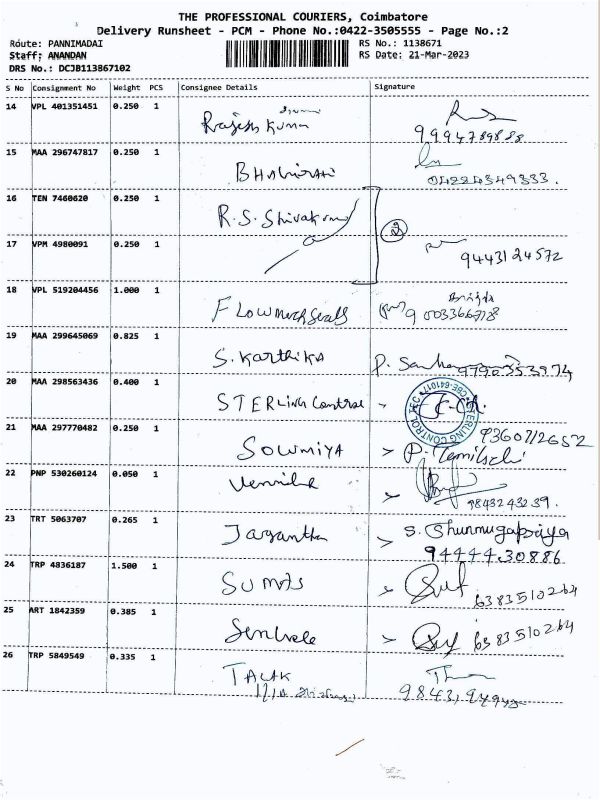 THE PROFESSIONAL COURIERS, Coimbatore
Delivery Runsheet - PCM - Phone No.:0422-3505555 - Page No.:2
Route: PANNIMADAI RS No.: 1138671
Staff: ANANDAN RS Date: 21-Mar-2023
DRS No.: DCJB113867102
S No Consignment No Weight PCS Consignee Details Signature
14 VPL 401351451 0.250 1
Rajesh Kumar
15 MAA 296747817 0.250 1
04224349333.
16 TEN 7460620 0.250 1
R.S. Shivakumar
2
17 VPM 4980091 0.250 1
9443124572
18 VPL 519204456 1.000 1
19 MAA 299645069 0.825 1
S. Karthika
20 MAA 298563436 0.400 1
STERLING Control
STERLING CONTROL CBE-641017
21 MAA 297770482 0.250 1
9360712652
SOWMIYA P. Tamilselvi
22 PNP 530260124 0.050 1
9843243239.
23 TRT 5063707 0.265 1
S. Shunmugapriya
94444 30886
24 TRP 4836187 1.500 1
6383510264
25 ART 1842359 0.385 1
6383510264
26 TRP 5849549 0.335 1